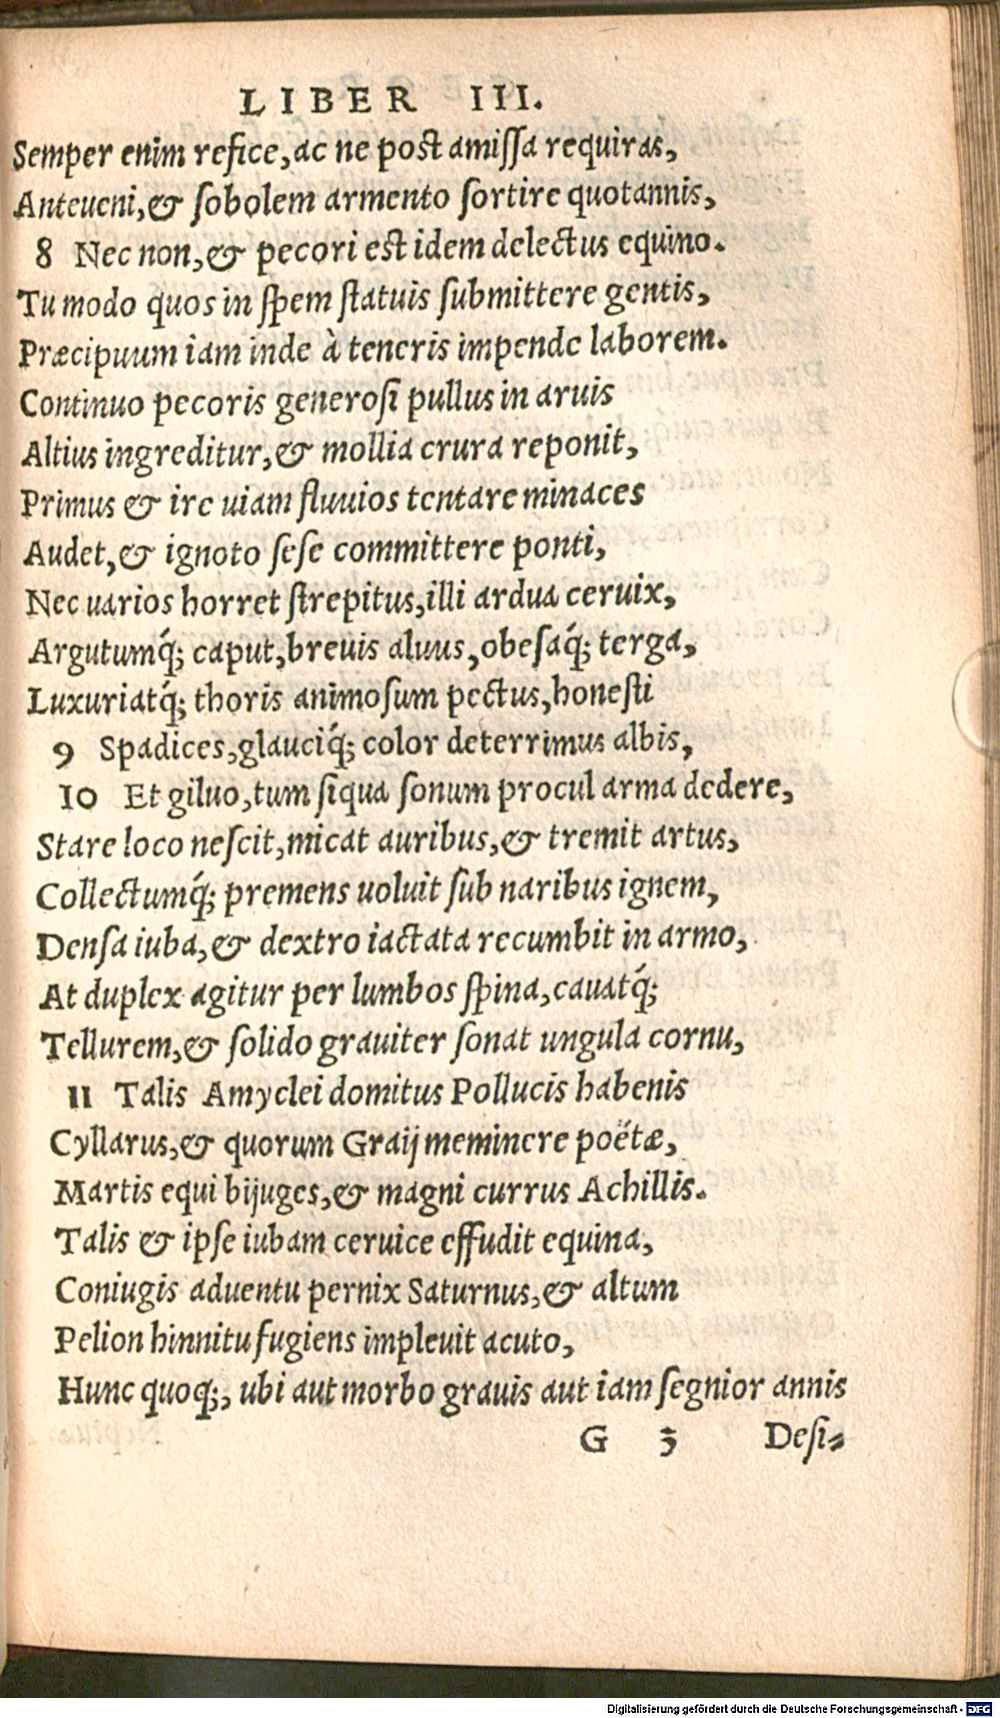 LIBER III.
Semper enim refice, ac ne post amissa requiras,
Anteueni, & sobolem armento sortire quotannis,
8 Nec non, & pecori est idem delectus equino.
Tu modo quos in spem statuis submittere gentis,
Præcipuum iam inde à teneris impende laborem.
Continuo pecoris generosi pullus in aruis
Altius ingreditur, & mollia crura reponit,
Primus & ire uiam fluuios tentare minaces
Audet, & ignoto sese committere ponti,
Nec uarios horret strepitus, illi ardua ceruix,
Argutumq́; caput, breuis aluus, obesaq́; terga,
Luxuriatq́; thoris animosum pectus, honesti
9 Spadices, glauciq́; color deterrimus albis,
10 Et giluo, tum siqua sonum procul arma dedere,
Stare loco nescit, micat auribus, & tremit artus,
Collectumq́; premens uoluit sub naribus ignem,
Densa iuba, & dextro iactata recumbit in armo,
At duplex agitur per lumbos spina, cauatq́;
Tellurem, & solido grauiter sonat ungula cornu,
11 Talis Amyclei domitus Pollucis habenis
Cyllarus, & quorum Graij meminere poëtæ,
Martis equi bijuges, & magni currus Achillis.
Talis & ipse iubam ceruice effudit equina,
Coniugis aduentu pernix Saturnus, & altum
Pelion hinnitu fugiens impleuit acuto,
Hunc quoq;, ubi aut morbo grauis aut iam segnior annis
G 3 Desi-
Digitalisierung gefördert durch die Deutsche Forschungsgemeinschaft - DFG